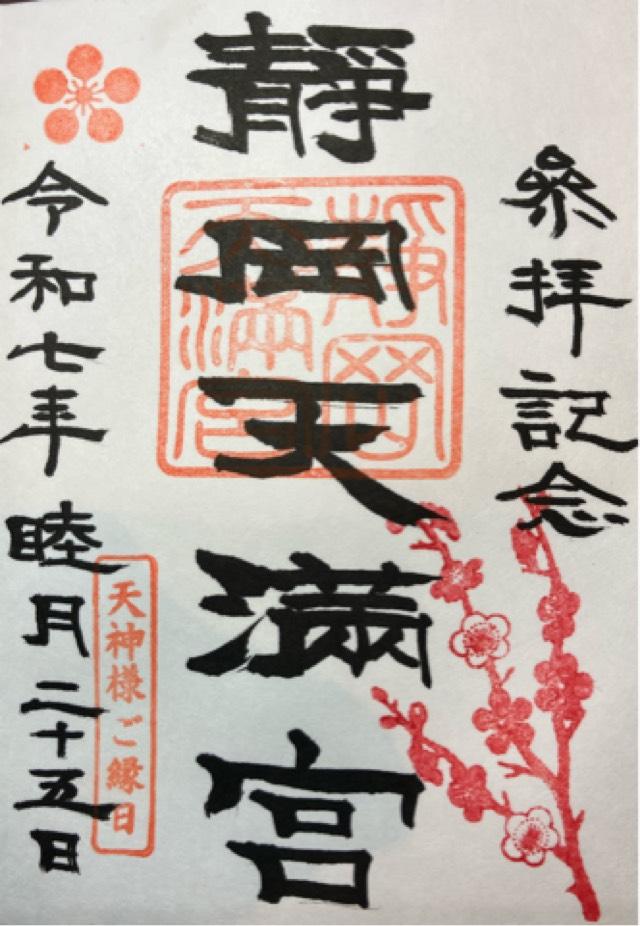 參拝記念
靜岡天満宮
静岡
天満宮
天神様ご縁日
令和七年睦月二十五日